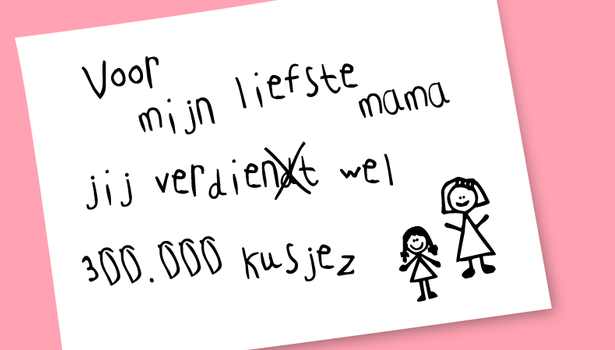 Voor
mijn liefste mama
jij verdient wel
300.000 kusjez